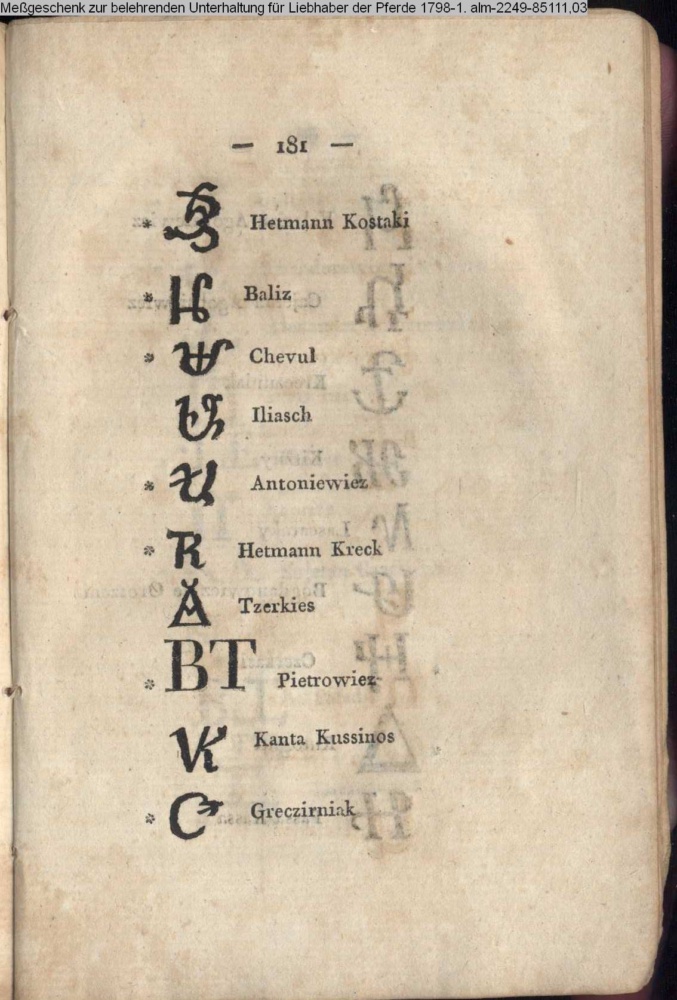 Meßgeschenk zur belehrenden Unterhaltung für Liebhaber der Pferde 1798-1. alm-2249-85111,03
— 181 —
* Hetmann Kostaki
* Baliz
* Chevul
Iliasch
* Antoniewiez
* Hetmann Kreck
Tzerkies
* BT Pietrowiez
Kanta Kussinos
* Greczirniak